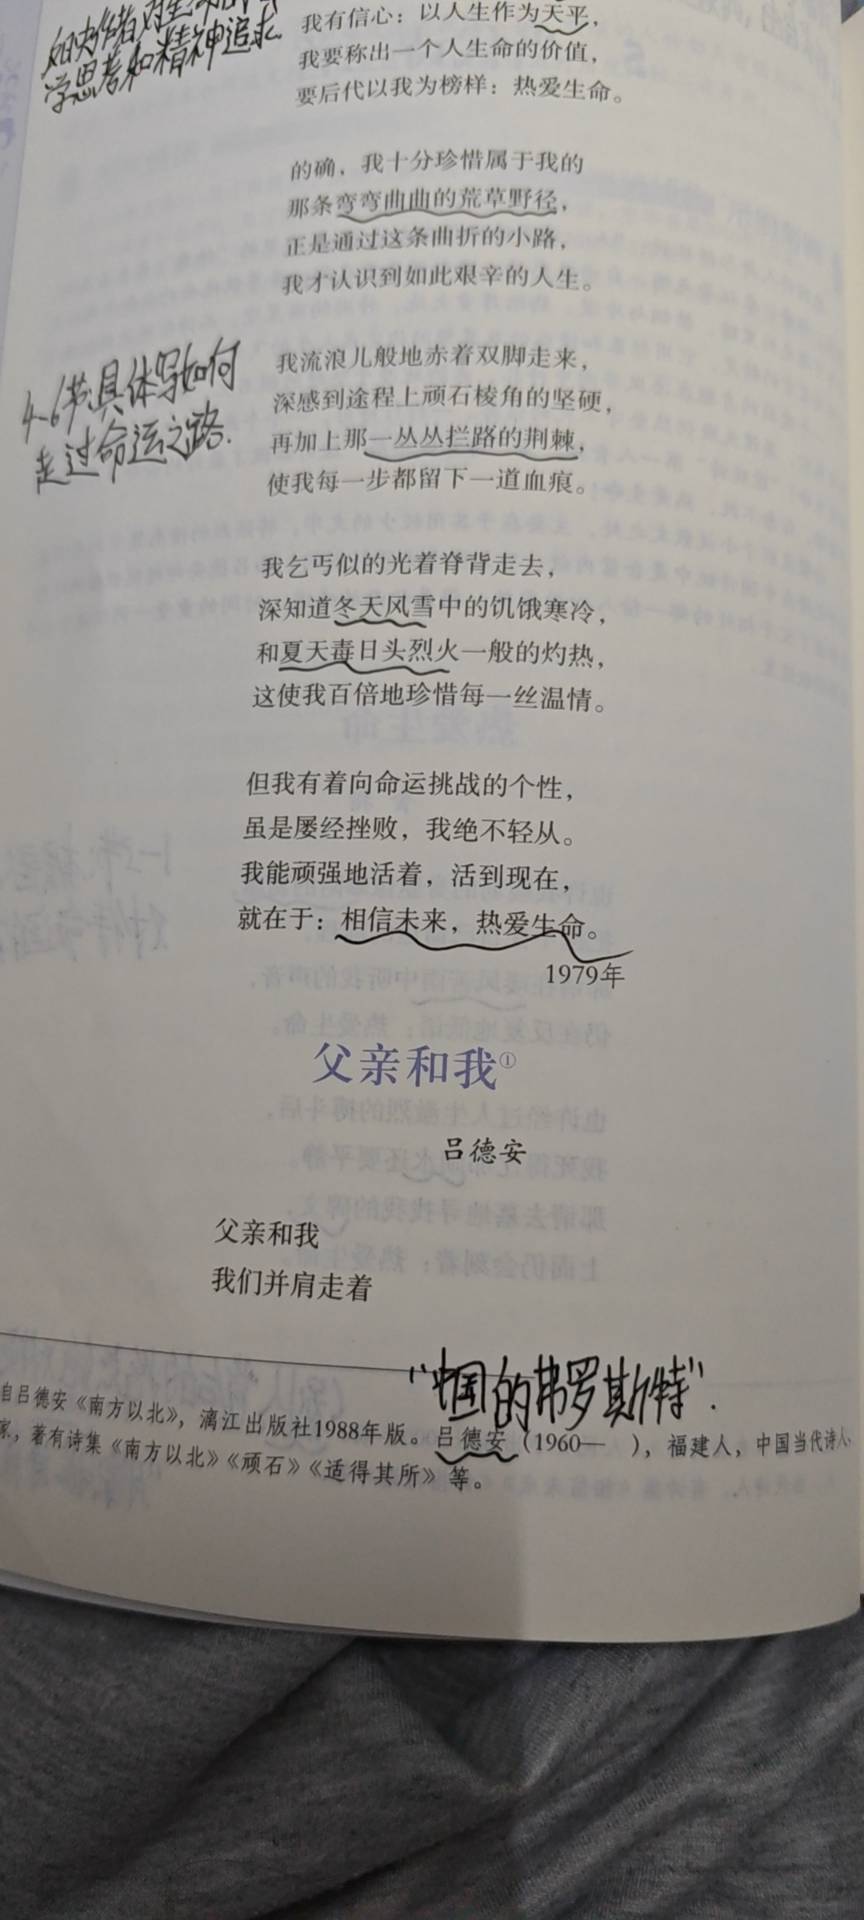 我有信心：以人生作为天平，
我要称出一个人生命的价值，
要后代以我为榜样：热爱生命。
学思考和精神追求
的确，我十分珍惜属于我的
那条弯弯曲曲的荒草野径，
正是通过这条曲折的小路，
我才认识到如此艰辛的人生。
4-6节具体写如何
走过命运之路.
我流浪儿般地赤着双脚走来，
深感到途程上顽石棱角的坚硬，
再加上那一丛丛拦路的荆棘，
使我每一步都留下一道血痕。
我乞丐似的光着脊背走去，
深知道冬天风雪中的饥饿寒冷，
和夏天毒日头烈火一般的灼热，
这使我百倍地珍惜每一丝温情。
但我有着向命运挑战的个性，
虽是屡经挫败，我绝不轻从。
我能顽强地活着，活到现在，
就在于：相信未来，热爱生命。
1979年
父亲和我①
吕德安
父亲和我
我们并肩走着
"中国的弗罗斯特".
自吕德安《南方以北》，漓江出版社1988年版。吕德安（1960— ），福建人，中国当代诗人
家，著有诗集《南方以北》《顽石》《适得其所》等。